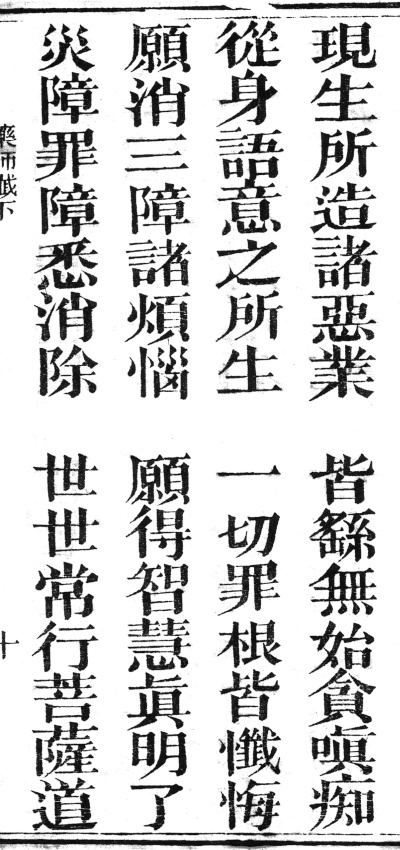 現生所造諸惡業　皆繇無始貪嗔痴
從身語意之所生　一切罪根皆懺悔
願消三障諸煩惱　願得智慧眞明了
災障罪障悉消除　世世常行菩薩道
藥師懺下　十